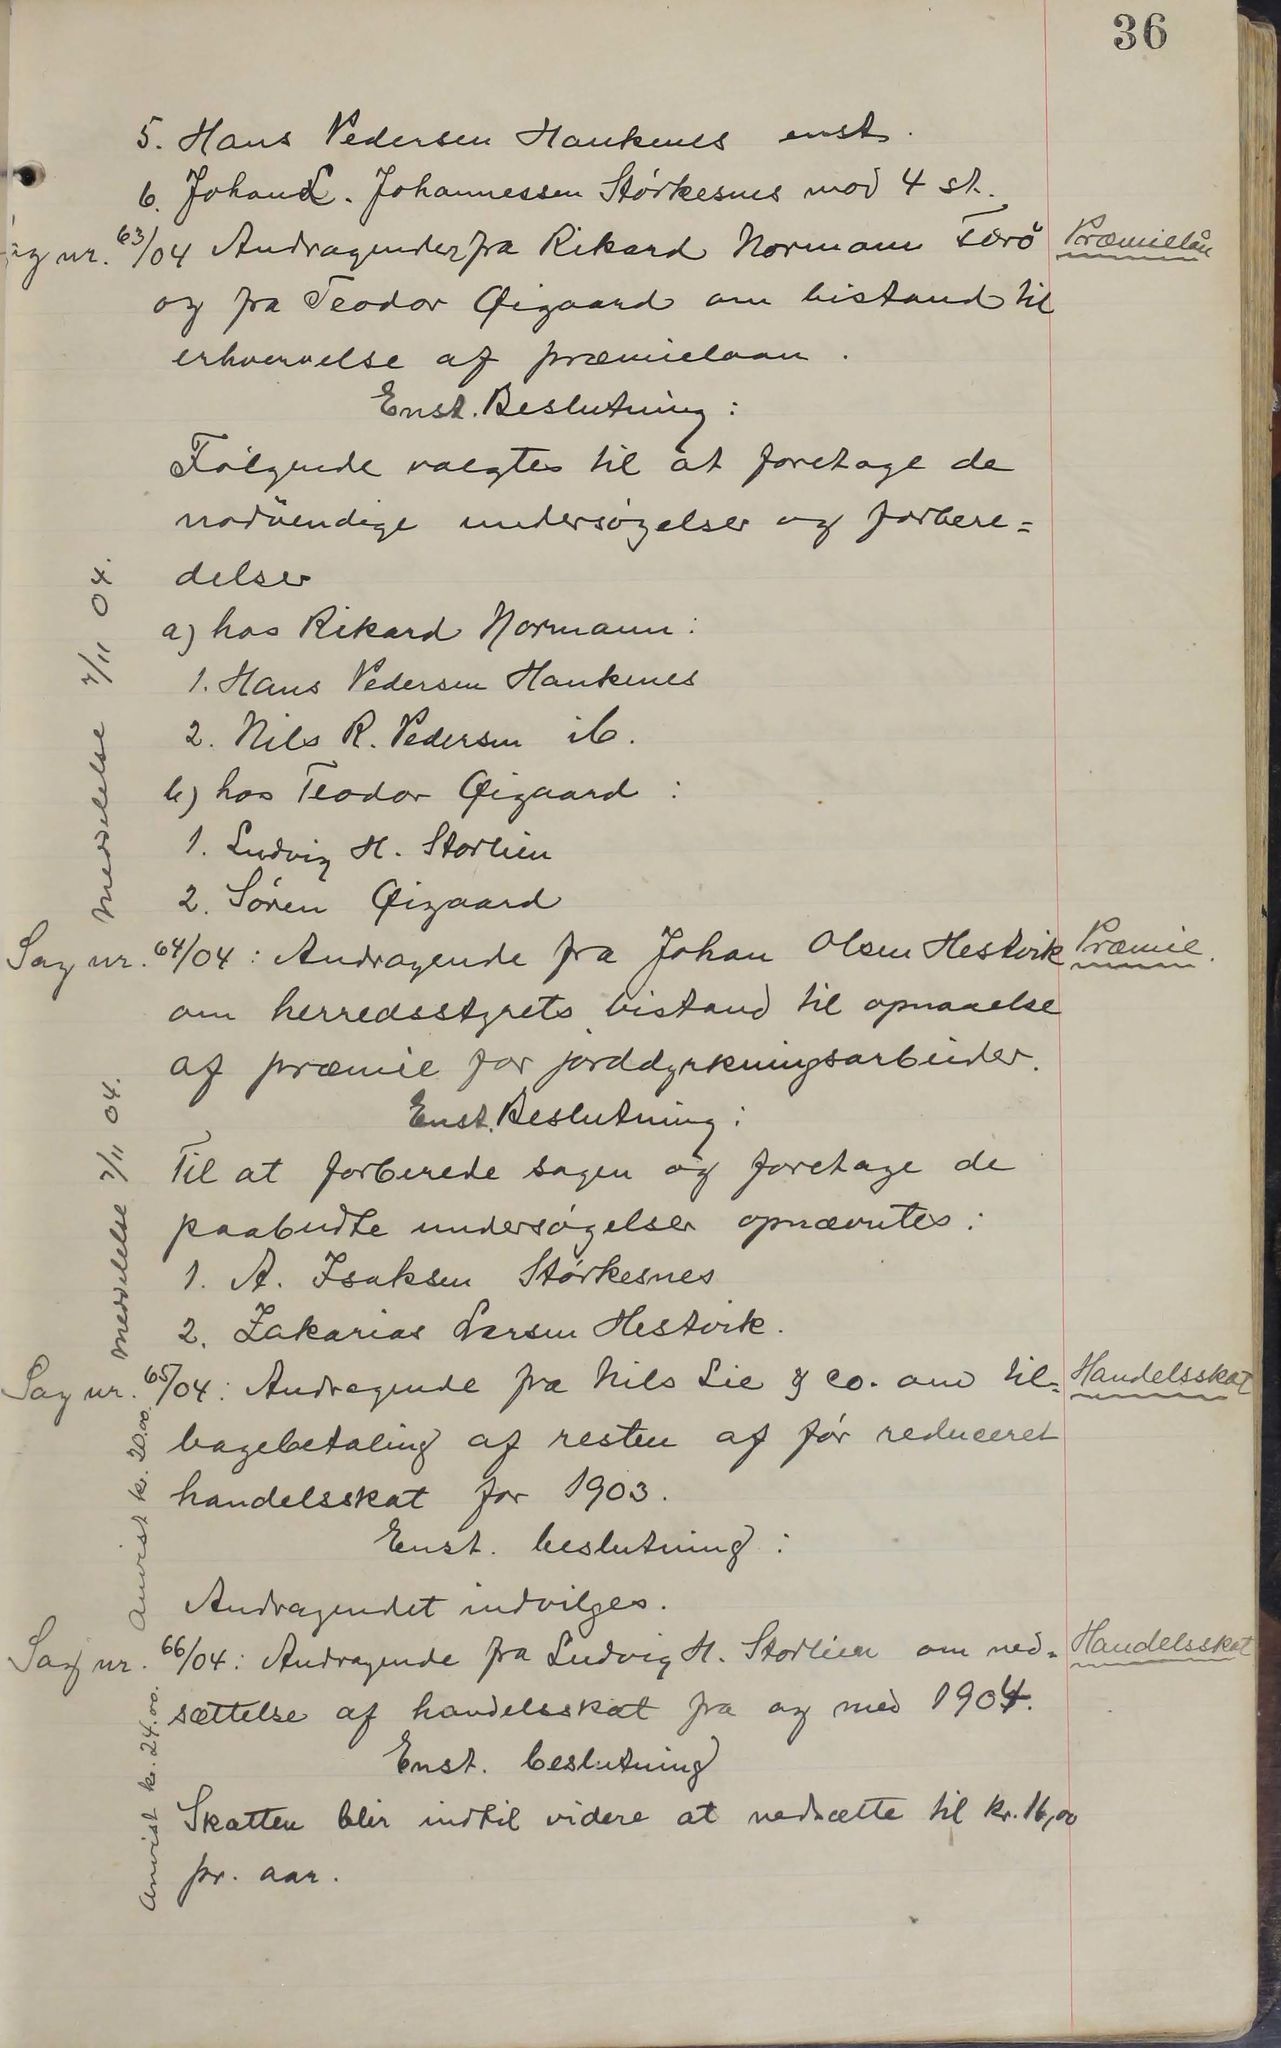 36
5. Hans Pedersen Haukenes enst.
6. Johan L. Johannessen Störkesnes mod 4 st.
Sag nr. 63/04 Andragender fra Rikard Normann Tærö
Præmielån
og fra Teodor Øigaard om bistand til
erhvervelse af præmielaan.
Enst. Beslutning:
Følgende valgtes til at foretage de
nødvendige undersøgelser og forbere=
delser
a) hos Rikard Normann:
1. Hans Pedersen Haukenes
2. Nils R. Pedersen ib.
b) hos Teodor Øigaard:
1. Ludvig H. Storlien
2. Sören Øigaard
Meddelelse 7/11 04.
Sag nr. 64/04: Andragende fra Johan Olsen Hestvik
Præmie.
om herredsstyrets bistand til opnaaelse
af præmie for jorddyrkningsarbeider.
Enst. Beslutning:
Til at forberede sagen og foretage de
paabudte undersøgelser opnævntes:
1. A. Isaksen Störkesnes
2. Zakarias Larsen Hestvik.
Meddelelse 7/11 04.
Sag nr. 65/04: Andragende fra Nils Lie & co. om til=
Handelsskat
bagebetaling af resten af før reduceret
handelsskat for 1903.
Enst. beslutning:
Andragendet indvilges.
Anvist kr. 20.00.
Sag nr. 66/04: Andragende fra Ludvig H. Storlien om ned=
Handelsskat
sættelse af handelsskat fra og med 1904.
Enst. beslutning
Skatten blir indtil videre at nedsætte til kr. 16,00
pr. aar.
Anvist kr. 24.00.